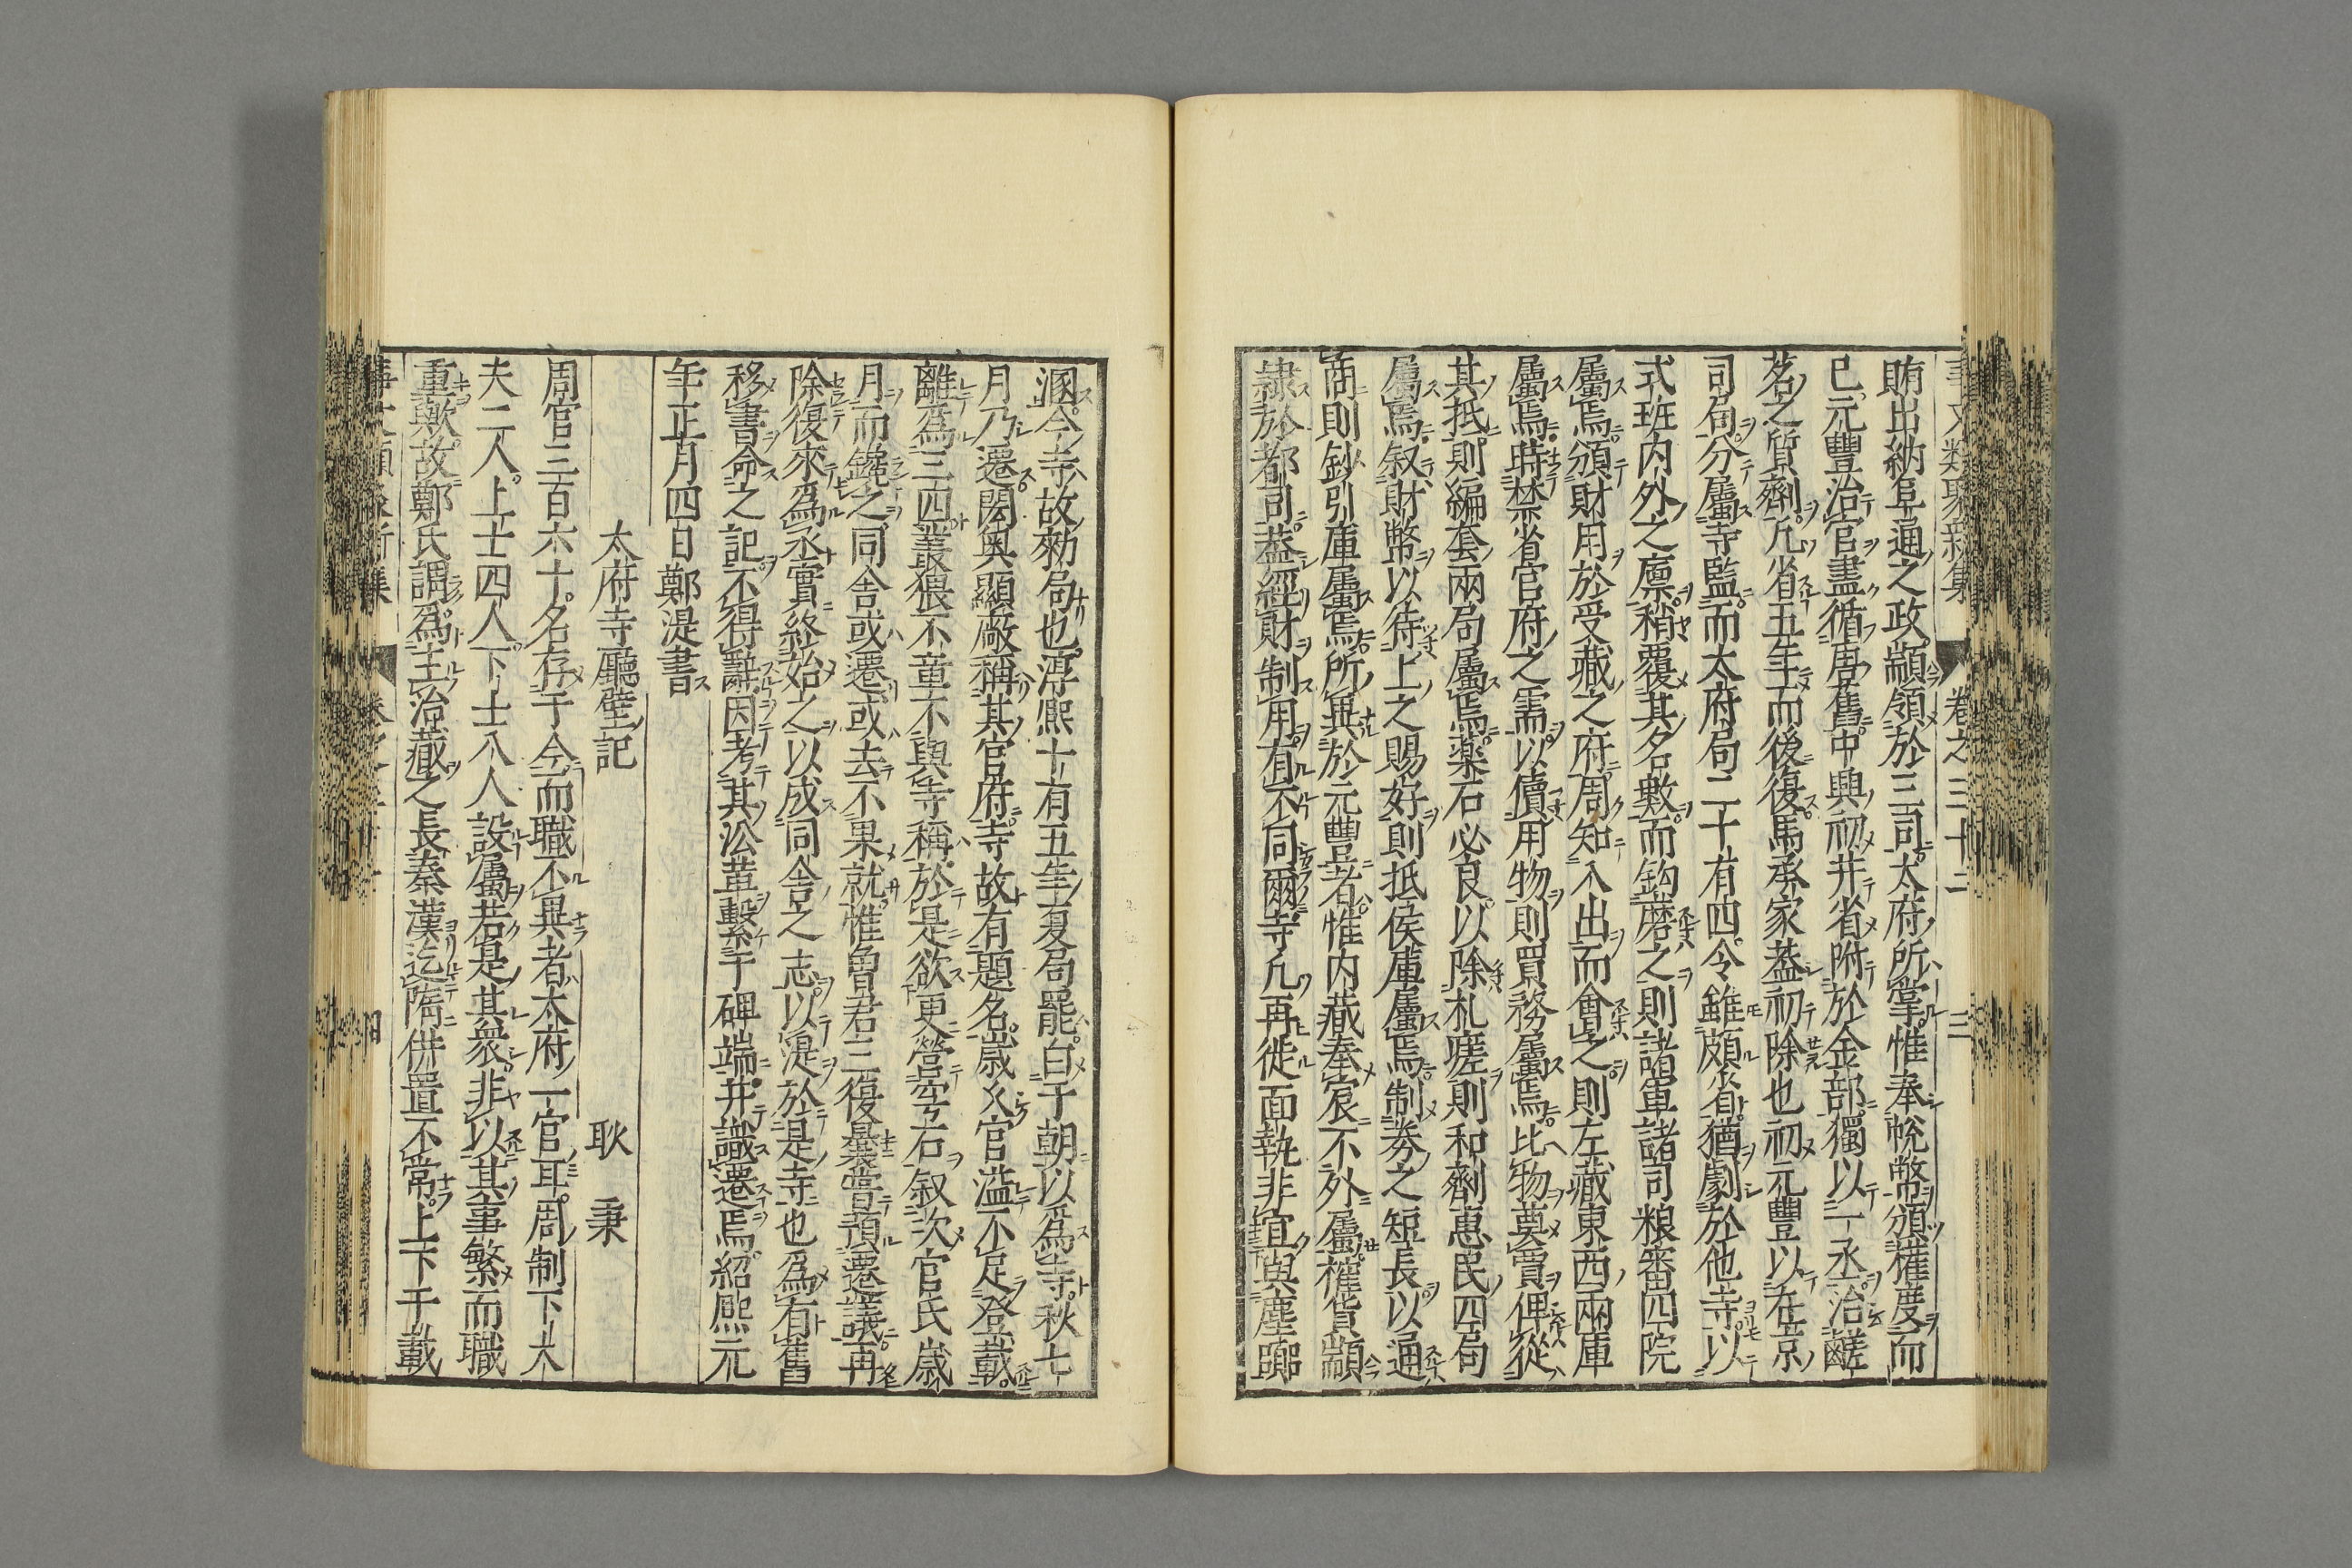 事文類聚新集 卷之三十二 三
賄出納阜通之政顓領於三司太府所掌惟奉帨幣頒權度而
已元豐治官盡循唐舊中興初并省附於金部獨以一丞治鹺
茗之質劑凡省五年而後復馬承家蓋初除也初元豐以在京
司局分屬寺監而太府局二十有四令雖頗省猶劇於他寺以
式班内外之廩稍覆其名數而鈎磨之則諸軍諸司粮審四院
屬焉頒財用於受藏之府周知入出而會之則左藏東西兩庫
屬焉時禁省官府之需以儥用物則買務屬焉比物奠賈俾從
其抵則編套兩局屬焉藥石必良以除札瘥則和劑惠民四局
屬焉叙財幣以待上之賜好則抵侯庫屬焉制劵之短長以通
商則鈔引庫屬焉所異於元豐者惟内藏奉宸不外屬榷貨顓
隷於都司蓋經財制用有不同爾寺凡再徙面執非宜與塵
溷今寺故勑局也淳熈十有五年夏局罷白于朝以為寺秋七
月乃遷閎奥顯敞稱其官府寺故有題名歳乆官溢不足登載
離為三四叢猥不童不與寺稱於是欲更營寺右叙次官氏歳
月而鑱之同舍或遷或去不果就惟魯君三復曩嘗預遷議再
除復來為丞實終始之以成同舍之志以湜於是寺也為有舊
移書命之記不得辭因考其㳂革繫于碑端并識遷焉紹熈元
年正月四日鄭湜書
太府寺廳壁記 耿秉
周官三百六十名存于今而職不異者太府一官耳周制下大
夫二人上士四人下士八人設屬若是其衆非以其事繁而職
重歟故鄭氏謂為主治藏之長秦漢迄隋併置不常上下千載